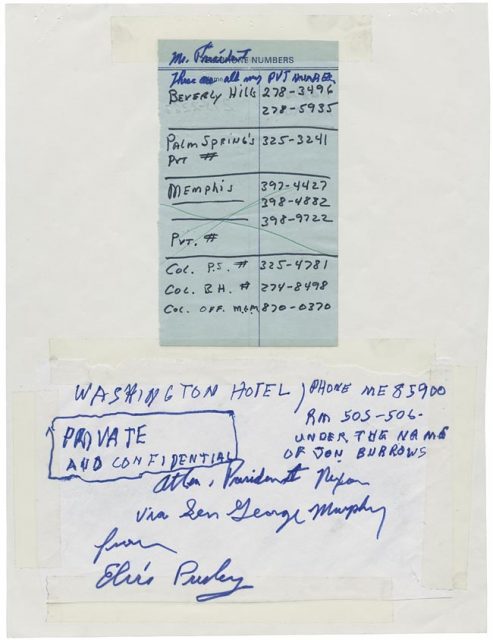 Mr. President
PHONE NUMBERS
These are all my PVT numbers
Beverly Hills 278-3496
278-5935
Palm Spring's 325-3241
Pvt #
Memphis 397-4427
398-4882
398-9722
Pvt. #
Col. P.S. # 325-4781
Col. B.H. # 274-8498
Col. Off. M.G.M 870-0370
WASHINGTON HOTEL) PHONE ME 85900
RM 505-506-
PRIVATE
AND CONFIDENTIAL
UNDER THE NAME
OF JON BURROWS
Attn. President Nixon
via Sen George Murphy
from
Elvis Presley